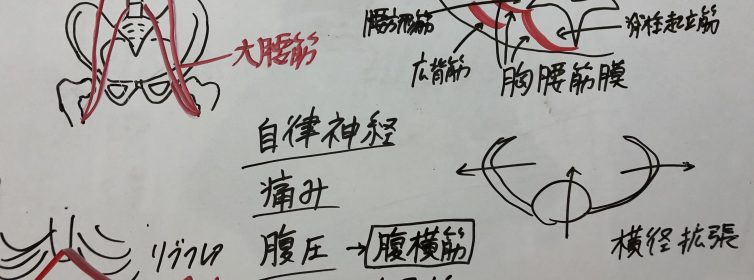 腰方形筋
脊柱起立筋
大腰筋
広背筋
胸腰筋膜
自律神経
痛み
リブフレア
腹圧→腹横筋
横径拡張